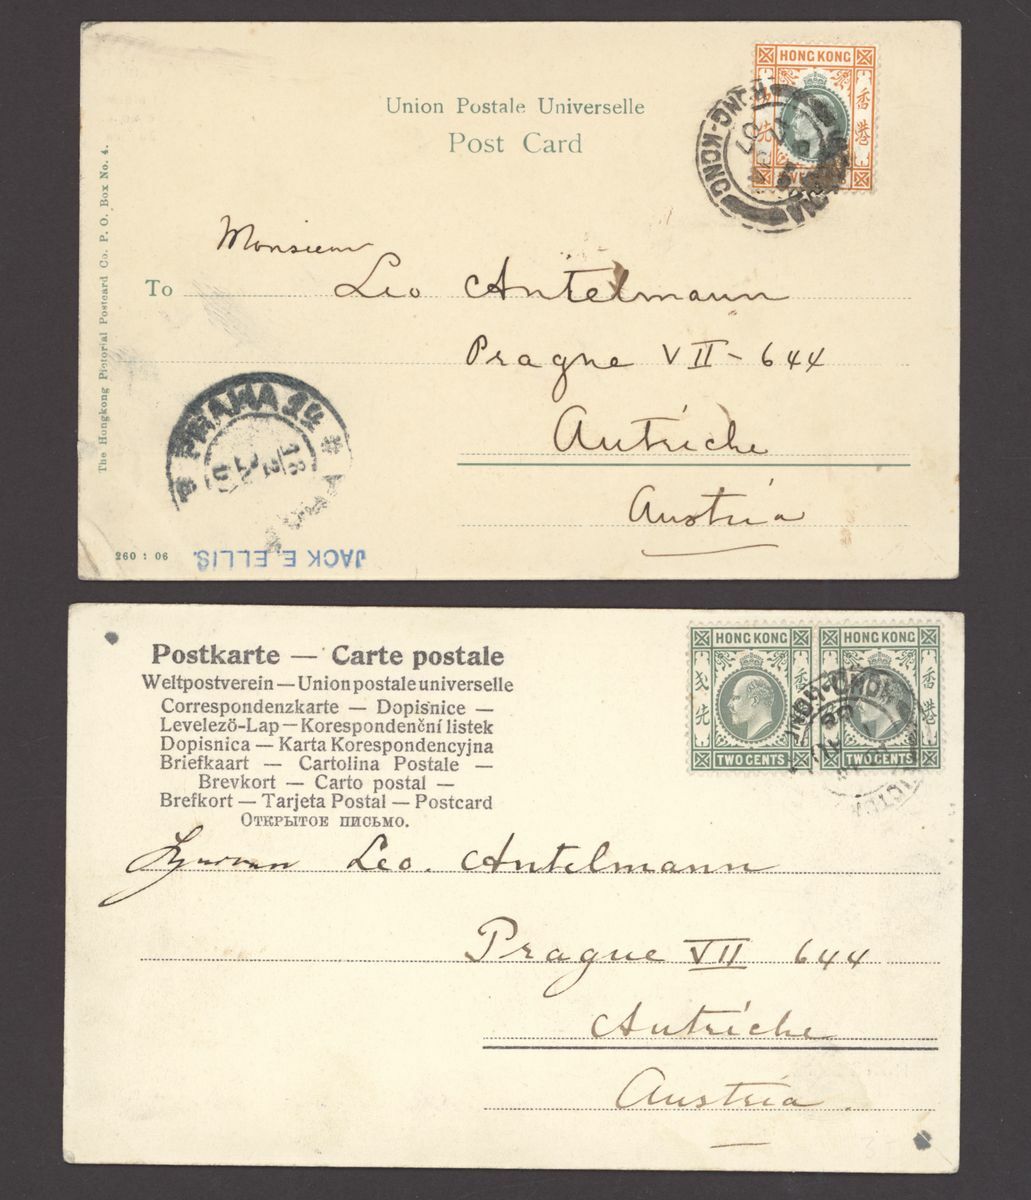 Union Postale Universelle
Post Card
HONG KONG
香港
VICTORIA HONG-KONG
07
The Hongkong Pictorial Postcard Co. P. O. Box No. 4.
Monsieur
To Leo Antelmann
Prague VII - 644
Autriche
Austria
PRAHA
18
2
260 : 06
JACK E. ELLIS.
Postkarte — Carte postale
Weltpostverein — Union postale universelle
Correspondenzkarte — Dopisnice —
Levelezö-Lap — Korespondenční listek
Dopisnica — Karta Korespondencyjna
Briefkaart — Cartolina Postale —
Brevkort — Carto postal —
Brefkort — Tarjeta Postal — Postcard
Открытое письмо.
HONG KONG
香港
TWO CENTS
HONG KONG
香港
TWO CENTS
VICTORIA HONG-KONG
Leo. Antelmann
Prague VII 644
Autriche
Austria.